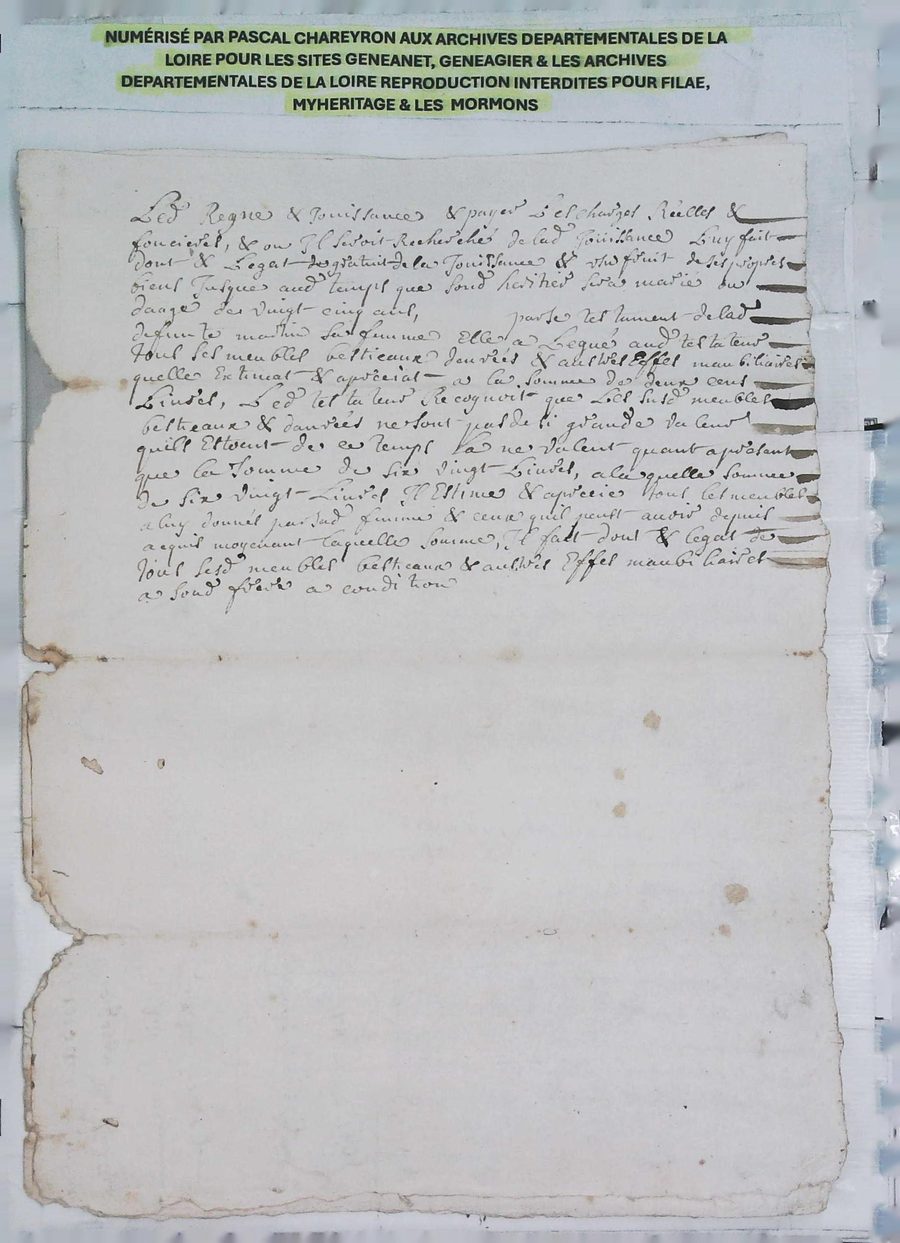 NUMÉRISÉ PAR PASCAL CHAREYRON AUX ARCHIVES DEPARTEMENTALES DE LA
LOIRE POUR LES SITES GENEANET, GENEAGIER & LES ARCHIVES
DEPARTEMENTALES DE LA LOIRE REPRODUCTION INTERDITES POUR FILAE,
MYHERITAGE & LES MORMONS
Led Regne & Jouissance & payer Les charges Réelles &
foncieres, & ou Il seroit Recherché de lad Jouissance Luy fait
dont & Legat de gratuit de la Jouissance & usufruit de ses propres
biens Jusque aud temps que sond heritier sera marié ou
daage de vingt cinq ans, par le testament de lad
defunte sa femme Elle a Legué aud testateur
Tous ses meubles bestieaux denrées & autres Effes maubiliaires
quelle Extimat & apreciat a la somme de deux cens
Livres, Led testateur Recognoit que Les susd meubles
bestieaux & danrées ne sont pas de si grande valeur
quils Estoient de ce Temps La ne valent quant apresant
que la somme de six vingt Livres, a la quelle somme
de six vingt Livres Il Estime & aprecie tous les meubles
a luy donnés par sad femme & ceux quil peust avoir depuis
acquis moyenant laquelle somme, Il fait dont & legat de
Tous sesd meubles bestieaux & autres Effes maubiliaires
a sond frere a condition